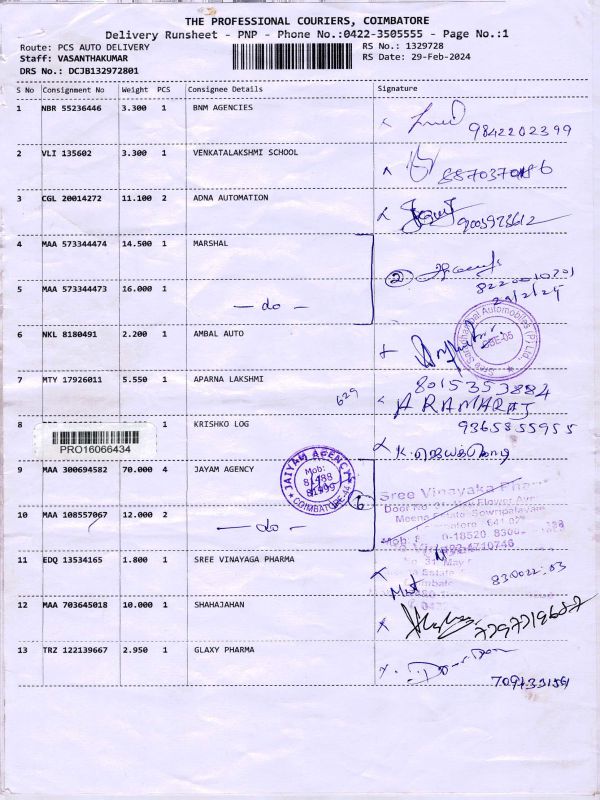 THE PROFESSIONAL COURIERS, COIMBATORE
Delivery Runsheet - PNP - Phone No.:0422-3505555 - Page No.:1
Route: PCS AUTO DELIVERY
Staff: VASANTHAKUMAR
DRS No.: DCJB132972801
RS No.: 1329728
RS Date: 29-Feb-2024
S No Consignment No Weight PCS Consignee Details Signature
1 NBR 55236446 3.300 1 BNM AGENCIES
9842202399
2 VLI 135602 3.300 1 VENKATALAKSHMI SCHOOL
3 CGL 20014272 11.100 2 ADNA AUTOMATION
9003973612
4 MAA 573344474 14.500 1 MARSHAL
5 MAA 573344473 16.000 1 — do — 2
8220010701
29/2/24
6 NKL 8180491 2.200 1 AMBAL AUTO
7 MTY 17926011 5.550 1 APARNA LAKSHMI 629
8015353884
ARAMARAJ
9365855955
8 1 KRISHKO LOG
PRO16066434
9 MAA 300694582 70.000 4 JAYAM AGENCY
JAIYAM AGENCY
Mob:
COIMBATORE-44
6
10 MAA 108557067 12.000 2 — do —
Sree Vinayaka
11 EDQ 13534165 1.800 1 SREE VINAYAGA PHARMA
12 MAA 703645018 10.000 1 SHAHAJAHAN
13 TRZ 122139667 2.950 1 GLAXY PHARMA